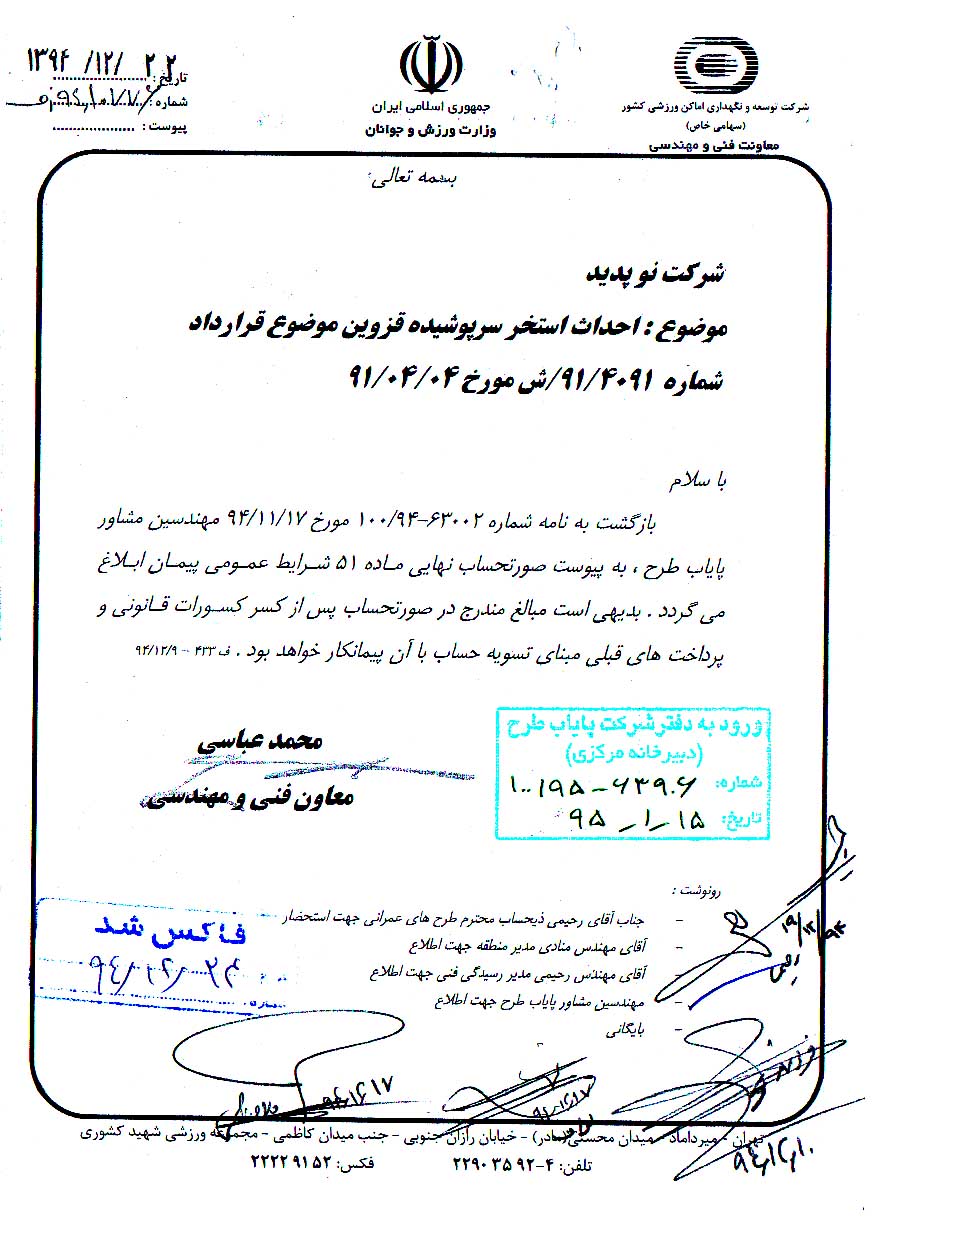 تاریخ: ۱۳۹۴/۱۲/۲۲
شماره:
پیوست:
جمهوری اسلامی ایران
وزارت ورزش و جوانان
شرکت توسعه و نگهداری اماکن ورزشی کشور
(سهامی خاص)
معاونت فنی و مهندسی
بسمه تعالی
شرکت نو پدید
موضوع : احداث استخر سرپوشیده قزوین موضوع قرارداد
شماره ۹۱/۴۰۹۱/ش مورخ ۹۱/۰۴/۰۴
با سلام
بازگشت به نامه شماره ۶۳۰۰۲-۱۰۰/۹۴ مورخ ۹۴/۱۱/۱۷ مهندسین مشاور
پایاب طرح ، به پیوست صورتحساب نهایی ماده ۵۱ شرایط عمومی پیمان ابلاغ
می گردد . بدیهی است مبالغ مندرج در صورتحساب پس از کسر کسورات قانونی و
پرداخت های قبلی مبنای تسویه حساب با آن پیمانکار خواهد بود . ف ۴۳۳ - ۹۴/۱۲/۹
محمد عباسی
معاون فنی و مهندسی
ورود به دفتر شرکت پایاب طرح
(دبیرخانه مرکزی)
شماره: ۱۰۰/۹۵-۶۳۹۰۶
تاریخ: ۹۵-۱-۱۵
رونوشت :
- جناب آقای رحیمی ذیحساب محترم طرح های عمرانی جهت استحضار
- آقای مهندس منادی مدیر منطقه جهت اطلاع
- آقای مهندس رحیمی مدیر رسیدگی فنی جهت اطلاع
- مهندسین مشاور پایاب طرح جهت اطلاع
- بایگانی
فاکس شد
۹۴/۱۲/۲۴
۹۴/۱۲/۱۹
۹۴/۱۲/۱۷
۹۴/۱۲/۱۷
۹۴/۱۲/۱۰
تهران - میرداماد - میدان محسنی (مادر) - خیابان رازان جنوبی - جنب میدان کاظمی - مجموعه ورزشی شهید کشوری
تلفن: ۴-۲۲۹۰۳۵۹۲ فکس: ۲۲۲۲۹۱۵۲